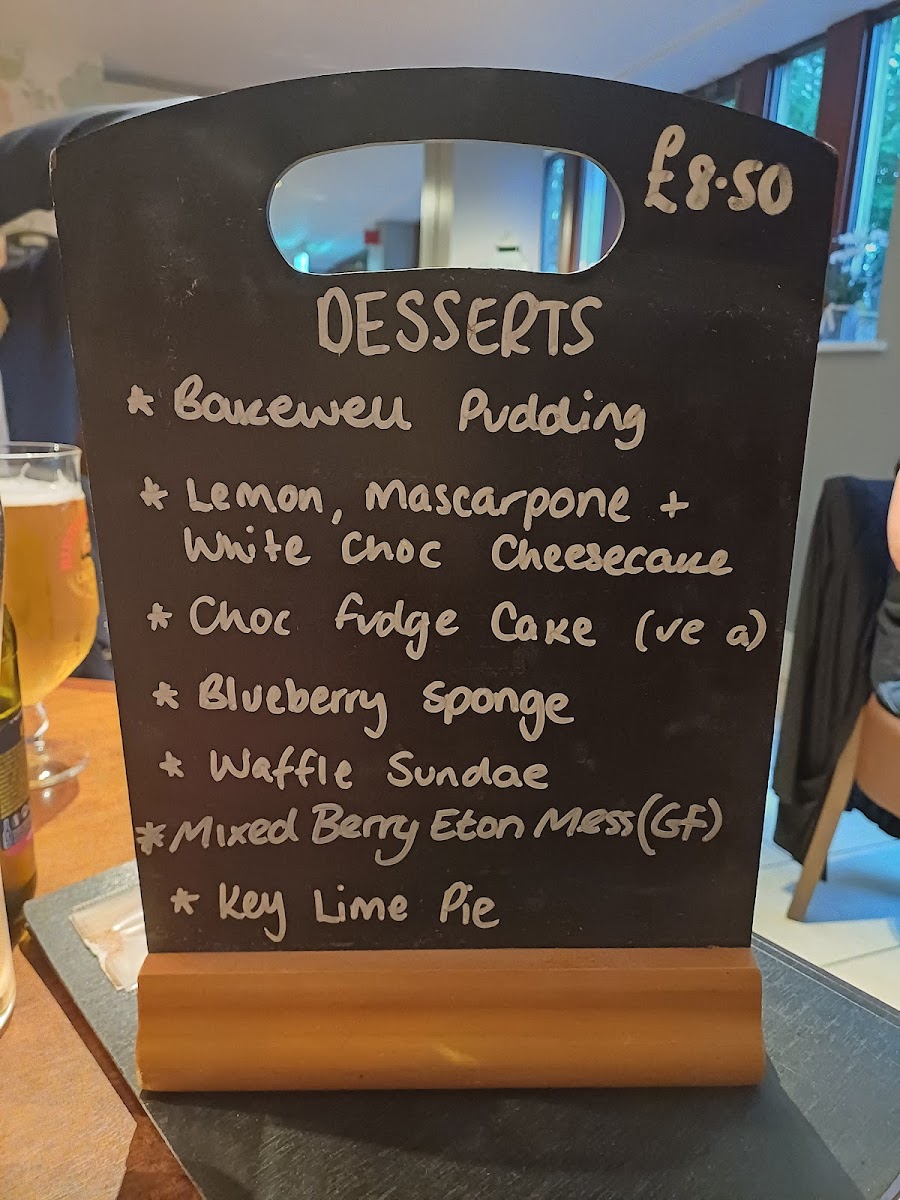 £8.50
DESSERTS
* Bakewell Pudding
* Lemon, Mascarpone +
White Choc Cheesecake
* Choc Fudge Cake (ve a)
* Blueberry Sponge
* Waffle Sundae
* Mixed Berry Eton Mess (GF)
* Key Lime Pie